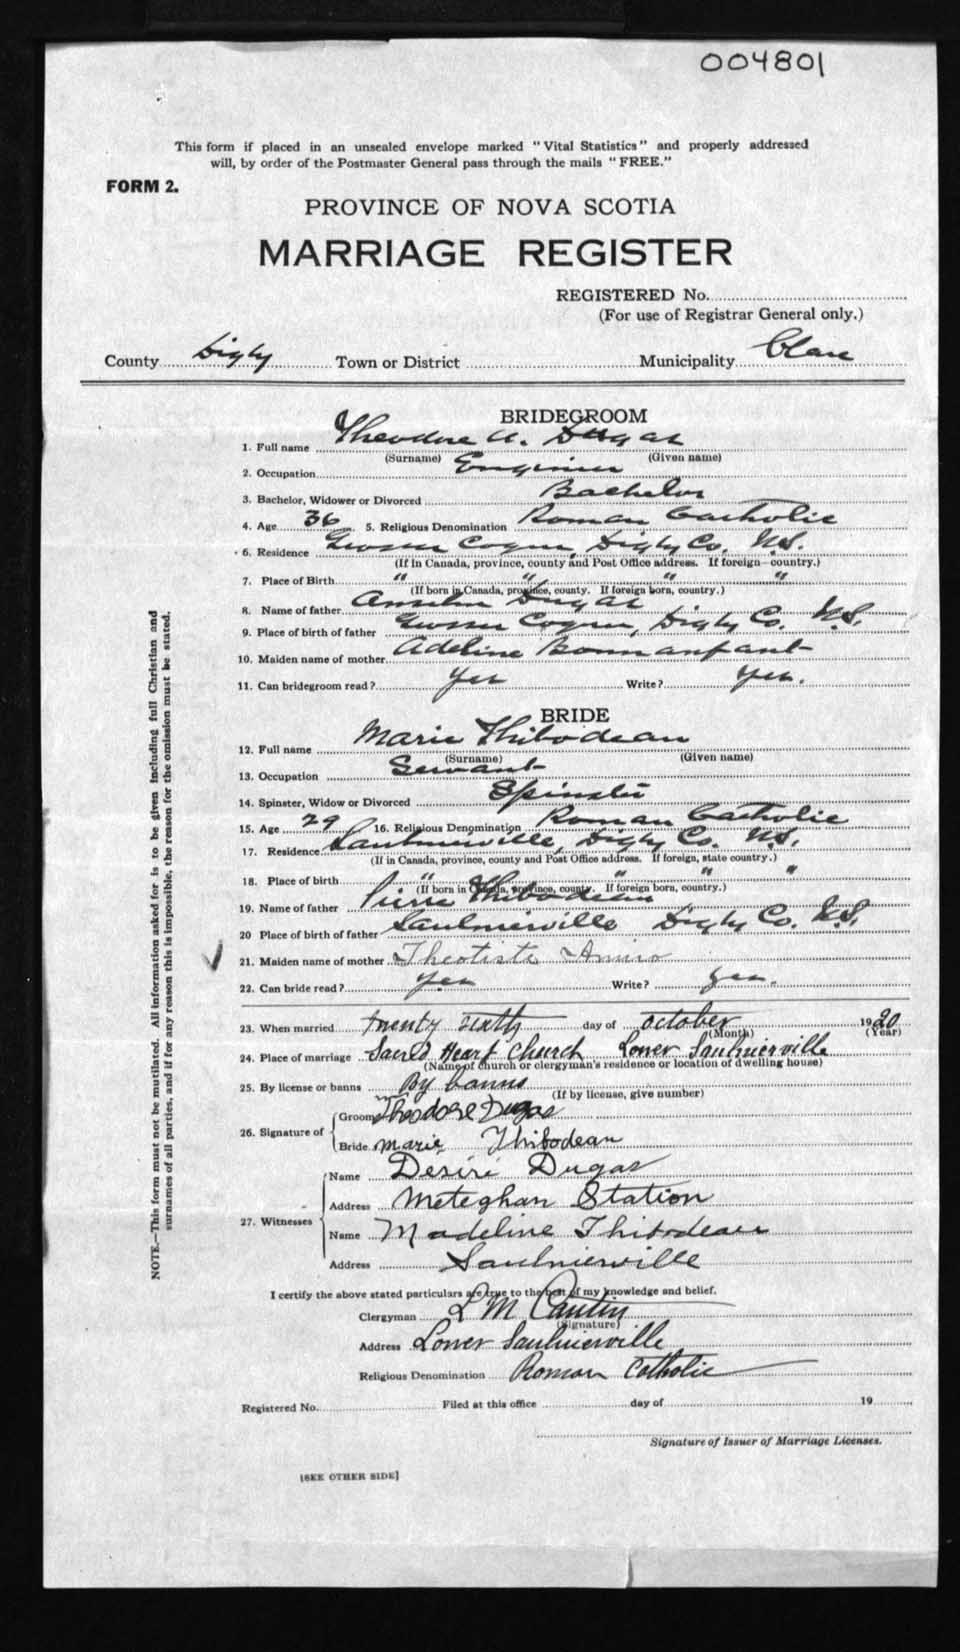 004801
This form if placed in an unsealed envelope marked "Vital Statistics" and properly addressed
will, by order of the Postmaster General pass through the mails "FREE."
FORM 2.
PROVINCE OF NOVA SCOTIA
MARRIAGE REGISTER
REGISTERED No.
(For use of Registrar General only.)
County Digby Town or District Municipality Clare
BRIDEGROOM
1. Full name Theodore A. Dugas
(Surname) (Given name)
2. Occupation Engineer
3. Bachelor, Widower or Divorced Bachelor
4. Age 36 5. Religious Denomination Roman Catholic
6. Residence Digby Co. N.S.
(If in Canada, province, county and Post Office address. If foreign—country.)
7. Place of Birth " " " "
(If born in Canada, province, county. If foreign born, country.)
8. Name of father Anselm Dugas
9. Place of birth of father Digby Co. N.S.
10. Maiden name of mother Adeline Bonnanfant
11. Can bridegroom read? yes Write? yes.
BRIDE
12. Full name Marie Thibodeau
(Surname) (Given name)
13. Occupation Servant
14. Spinster, Widow or Divorced Spinster
15. Age 29 16. Religious Denomination Roman Catholic
17. Residence Saulnierville, Digby Co. N.S.
(If in Canada, province, county and Post Office address. If foreign, state country.)
18. Place of birth " " " "
(If born in Canada, province, county. If foreign born, country.)
19. Name of father Pierre Thibodeau
20 Place of birth of father Saulnierville Digby Co. N.S.
21. Maiden name of mother Theotiste
22. Can bride read? yes Write? yes.
23. When married twenty sixth day of October 1920
(Month) (Year)
24. Place of marriage Sacred Heart Church Lower Saulnierville
(Name of church or clergyman's residence or location of dwelling house)
25. By license or banns By banns
(If by license, give number)
26. Signature of Groom Theodore Dugas
Bride Marie Thibodeau
27. Witnesses Name Desiré Dugas
Address Meteghan Station
Name Madeline Thibodeau
Address Saulnierville
I certify the above stated particulars are true to the best of my knowledge and belief.
Clergyman L M Cautin
(Signature)
Address Lower Saulnierville
Religious Denomination Roman Catholic
Registered No. Filed at this office day of 19
Signature of Issuer of Marriage Licenses.
[SEE OTHER SIDE]
NOTE.—This form must not be mutilated. All information asked for is to be given including full Christian and
surnames of all parties, and if for any reason this is impossible, the reason for the omission must be stated.